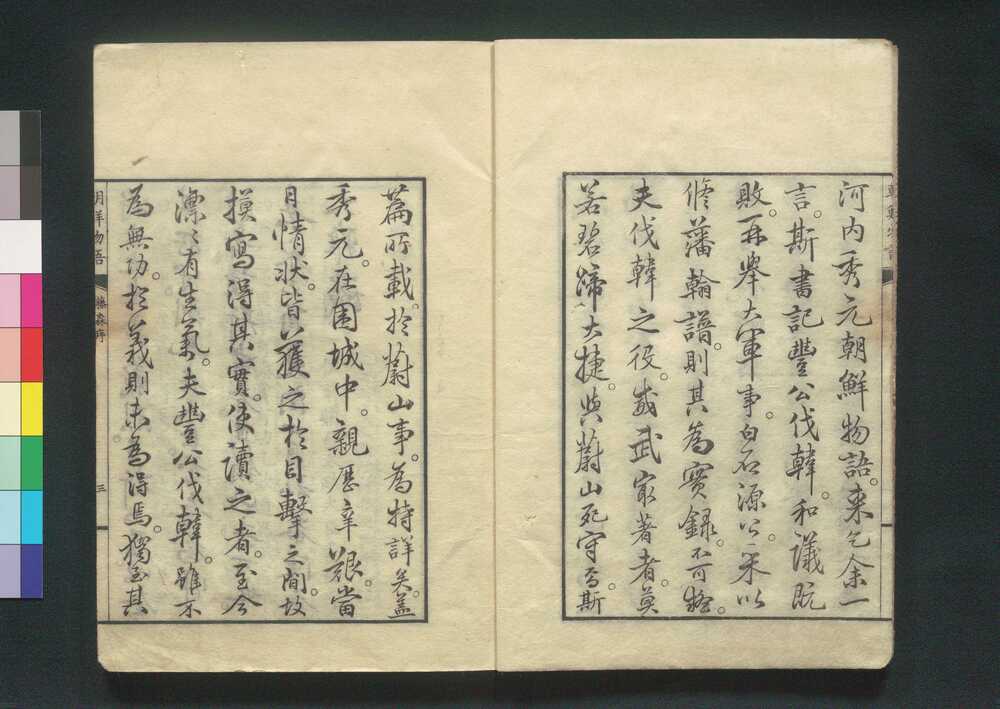 河内秀元朝鮮物語。来乞余一
言。斯書記豐公伐韓。和議既
敗。再擧大軍事。白石源公。采以
脩藩翰譜。則其為實録。不可誣。
夫伐韓之役。威武最著者。莫
若碧蹄大捷。與蔚山死守。而斯
篇所載。於蔚山事。為特詳矣。蓋
秀元。在圍城中。親歴辛艱。當
日情状。皆獲之於目擊之間。故
摸寫得其實。使讀之者。至今
漂々有生氣。夫豐公伐韓。雖不
為無功。於義則未為得焉。獨至其
朝鮮物語
藤森序
三